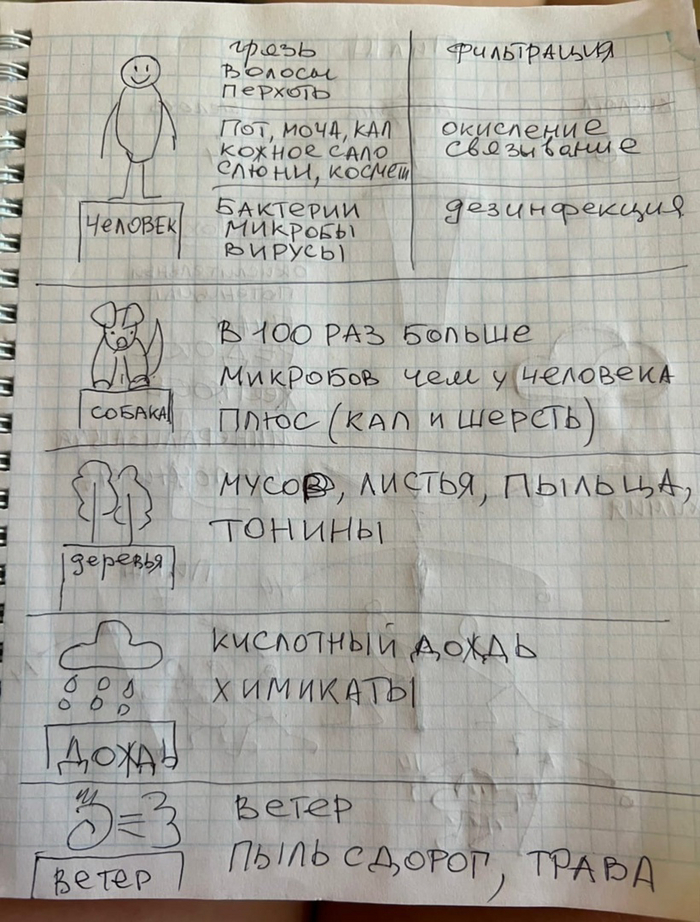 грязь
волосы
перхоть
фильтрация
пот, моча, кал
кожное сало
слюни, космет
окисление
связывание
бактерии
микробы
вирусы
дезинфекция
человек
в 100 раз больше
микробов чем у человека
плюс (кал и шерсть)
собака
мусор, листья, пыльца,
тонины
деревья
кислотный дождь
химикаты
дождь
ветер
пыль с дорог, трава
ветер